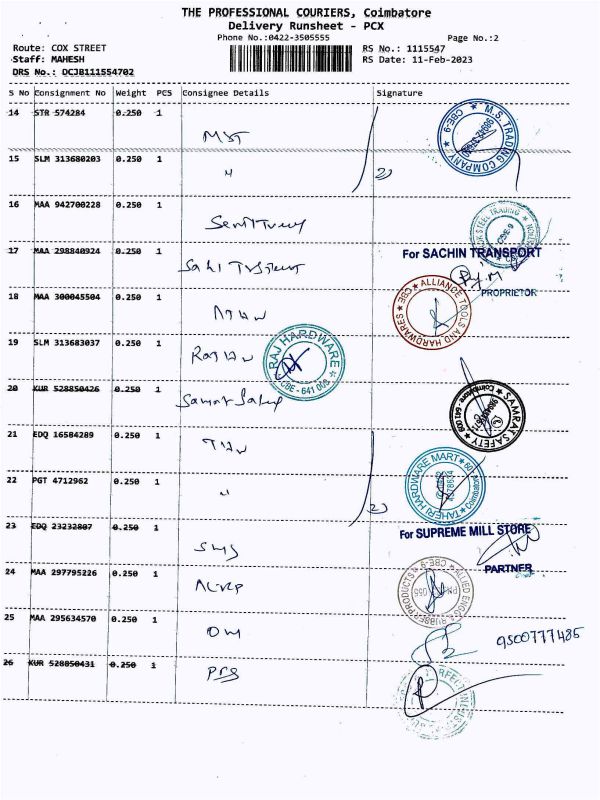 THE PROFESSIONAL COURIERS, Coimbatore
Delivery Runsheet - PCX
Phone No.:0422-3505555
Page No.:2
Route: COX STREET
RS No.: 1115547
Staff: MAHESH
RS Date: 11-Feb-2023
DRS No.: DCJB111554702
S No Consignment No Weight PCS Consignee Details Signature
14 STR 574284 0.250 1
MST
M.S. TRADING COMPANY
CBE-9
15 SLM 313680203 0.250 1
"
2)
16 MAA 942700228 0.250 1
STEEL TRADING
CBE-9
17 MAA 298840924 0.250 1
For SACHIN TRANSPORT
PROPRIETOR
18 MAA 300045504 0.250 1
ALLIANCE TOOLS AND HARDWARES
CBE
19 SLM 313683037 0.250 1
RAJ HARDWARE
CBE - 641 009
20 KUR 528850426 0.250 1
SAMRAT SAFETY
Coimbatore 641 009
21 EDQ 16584289 0.250 1
THW
TAHERI HARDWARE MART
Coimbatore
22 PGT 4712962 0.250 1
"
2)
23 EDQ 23232807 0.250 1
SMS
For SUPREME MILL STORE
PARTNER
24 MAA 297795226 0.250 1
ALLIED ENGG & RUBBER PRODUCTS
CBE-9
25 MAA 295634570 0.250 1
OM
9500777485
26 KUR 528850431 0.250 1